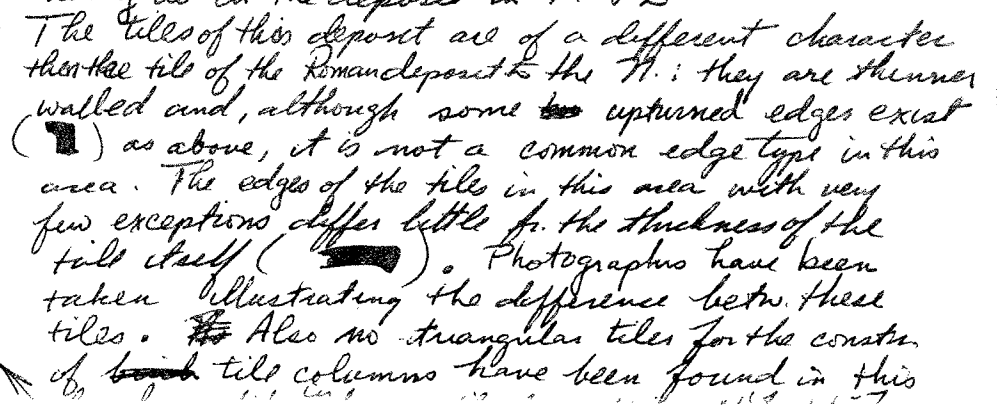 The tiles of this deposit are of a different character
then the tile of the Roman deposit to the N.: they are thinner
walled and, although some upturned edges exist
( ) as above, it is not a common edge type in this
area. The edges of the tiles in this area with very
few exceptions differ little fr. the thickness of the
tile itself ( ). Photographs have been
taken illustrating the difference betw. these
tiles. Also no triangular tiles for the constr.
of tile columns have been found in this